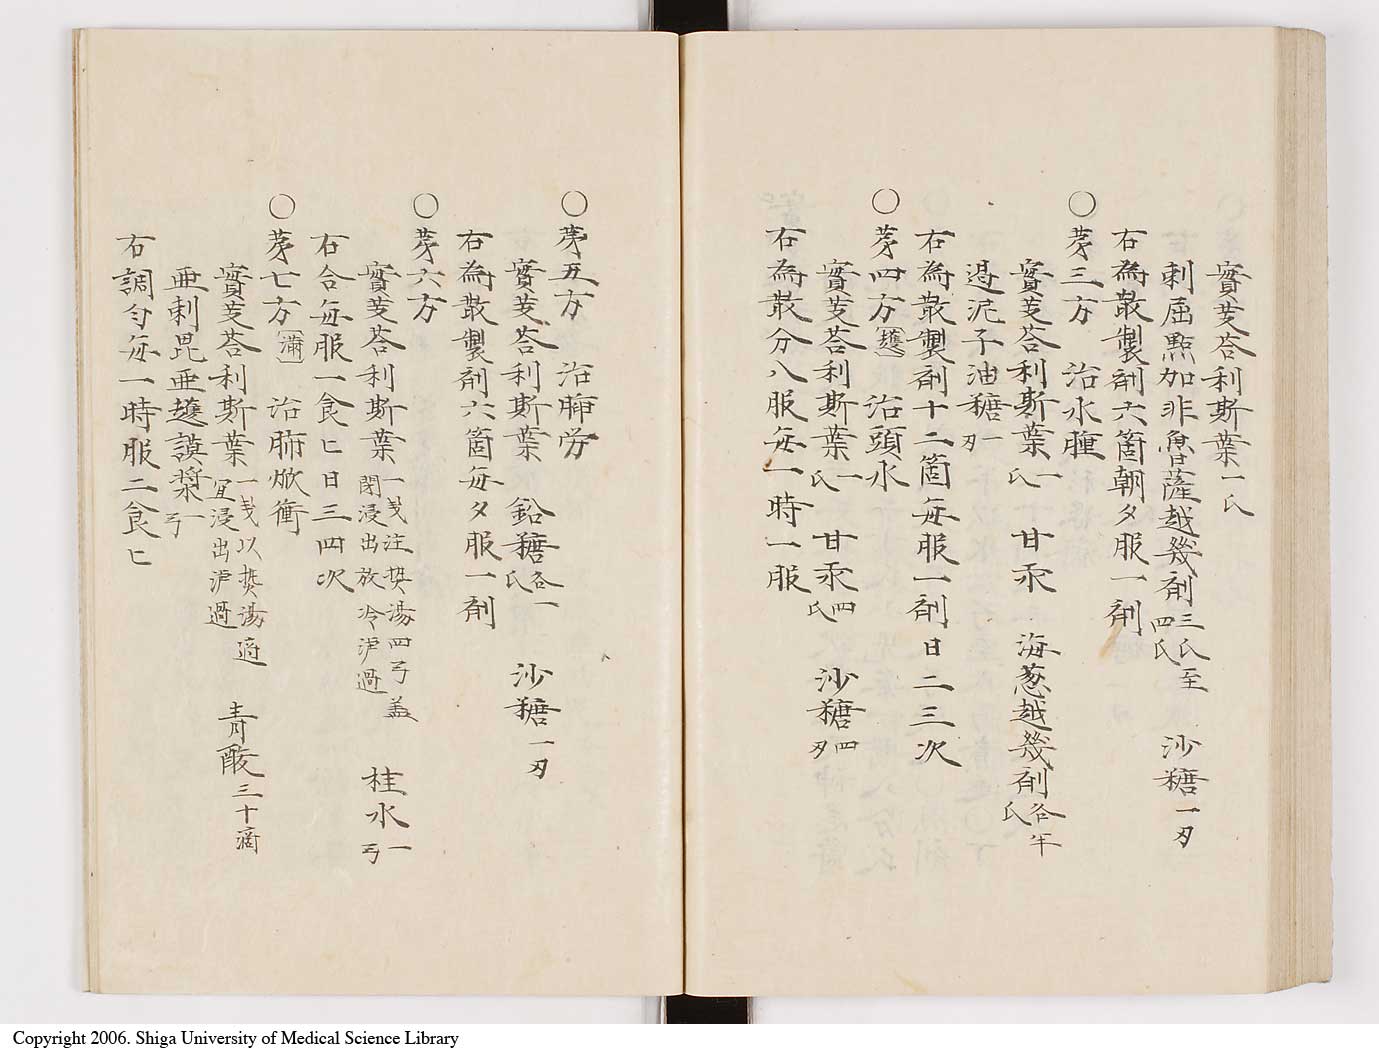 實芰荅利斯葉一氏
刺屈㸃加非魯薩越幾剤三氏至四氏 沙糖一刄
右為散製剤六箇朝夕服一剤
○苐三方 治水腫
實芰荅利斯葉一氏 甘汞 海葱越幾剤各半氏
遏泥子油糖一刄
右為散製剤十二箇毎服一剤日二三次
○苐四方 治頭水
實芰荅利斯葉一氏 甘汞四氏 沙糖四刄
右為散分八服毎一時一服
○苐五方 治肺労
實芰荅利斯葉 鉛糖各一氏 沙糖一刄
右為散製剤六箇毎夕服一剤
○苐六方
實芰荅利斯葉一戔注熱湯四弓盖閉浸出放冷沪過 桂水一弓
右合毎服一食匕日三四次
○苐七方 治肺焮衝
實芰荅利斯葉一戔以熱湯適宜浸出沪過 青酸三十滴
亜剌毘亜護謨漿一弓
右調匀毎一時服二食匕
Copyright 2006. Shiga University of Medical Science Library